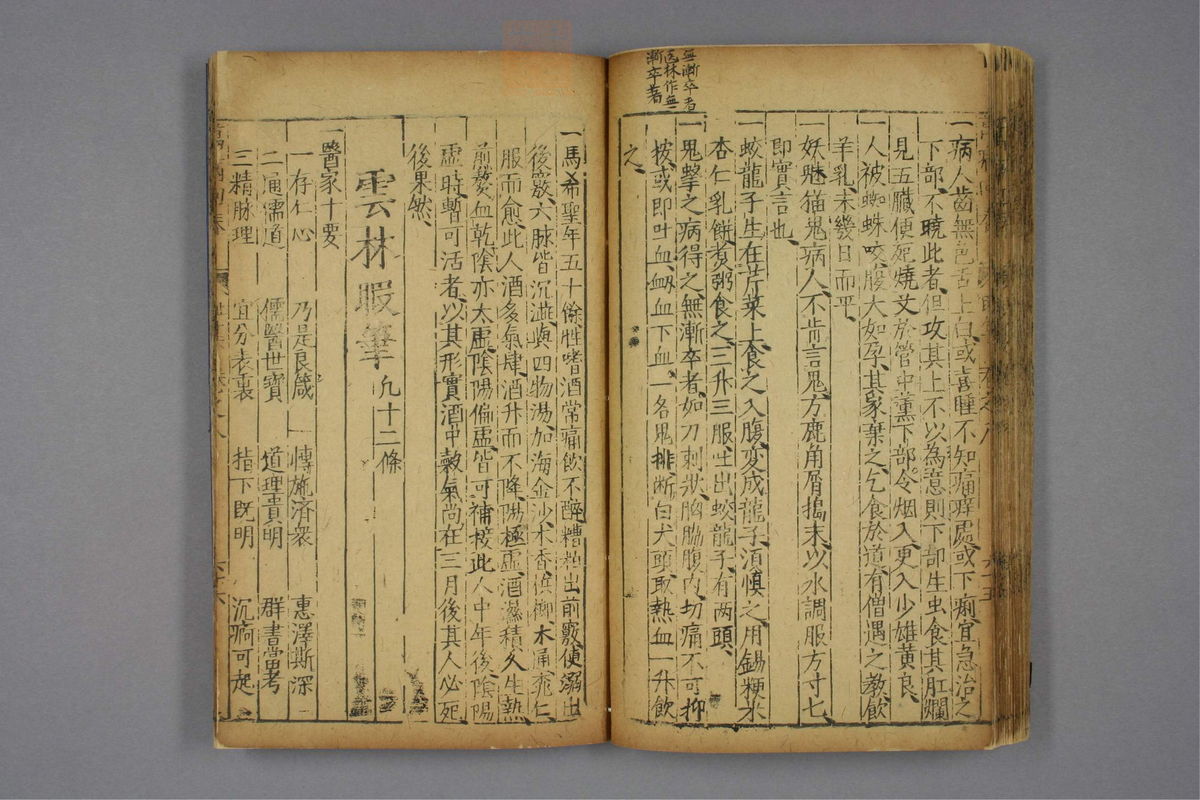 無漸卒者
医林作無
漸卒著
一病人齒無色舌上白或喜睡不知痛痒處或下痢宜急治之
下部不曉此者但攻其上不以為意則下部生虫食其肛爛
見五臟便死燒艾於管中薰下部令烟入更入少雄黃良
一人被蜘蛛咬腹大如孕其家棄之乞食於道有僧遇之教飲
羊乳未幾日而平
一妖魅猫鬼病人不肯言鬼方鹿角屑搗末以水調服方寸七
即實言也
一蛟龍子生在芹菜上食之入腹变成龍子須慎之用錫粳米
杏仁乳餅煮粥食之三升三服吐出蛟龍子有两頭
一鬼擊之病得之無漸卒者如刀刺狀胸脇腹内切痛不可抑
按或即吐血衂血下血一名鬼排断白犬頭取熱血一升飲
之
一馬希聖年五十餘性嗜酒常痛飲不醉糟粕出前竅便溺出
後竅六脉皆沉澁與四物湯加海金沙木香槟榔木通桃仁
服而愈此人酒多氣肆酒升而不降陽極虛酒濕積久生熱
前熬血乾陰亦大虛陰陽偏虛皆可補接此人中年後陰陽
虛時暫可活者以其形實酒中穀氣尚在三月後其人必死
後果然
雲林暇筆 九十二條
一醫家十要
一存仁心 乃是良箴 博施済衆 惠澤斯深
二通儒道 儒醫世寶 道理貴明 群書當考
三精脉理 宜分表裏 指下既明 沉痾可起